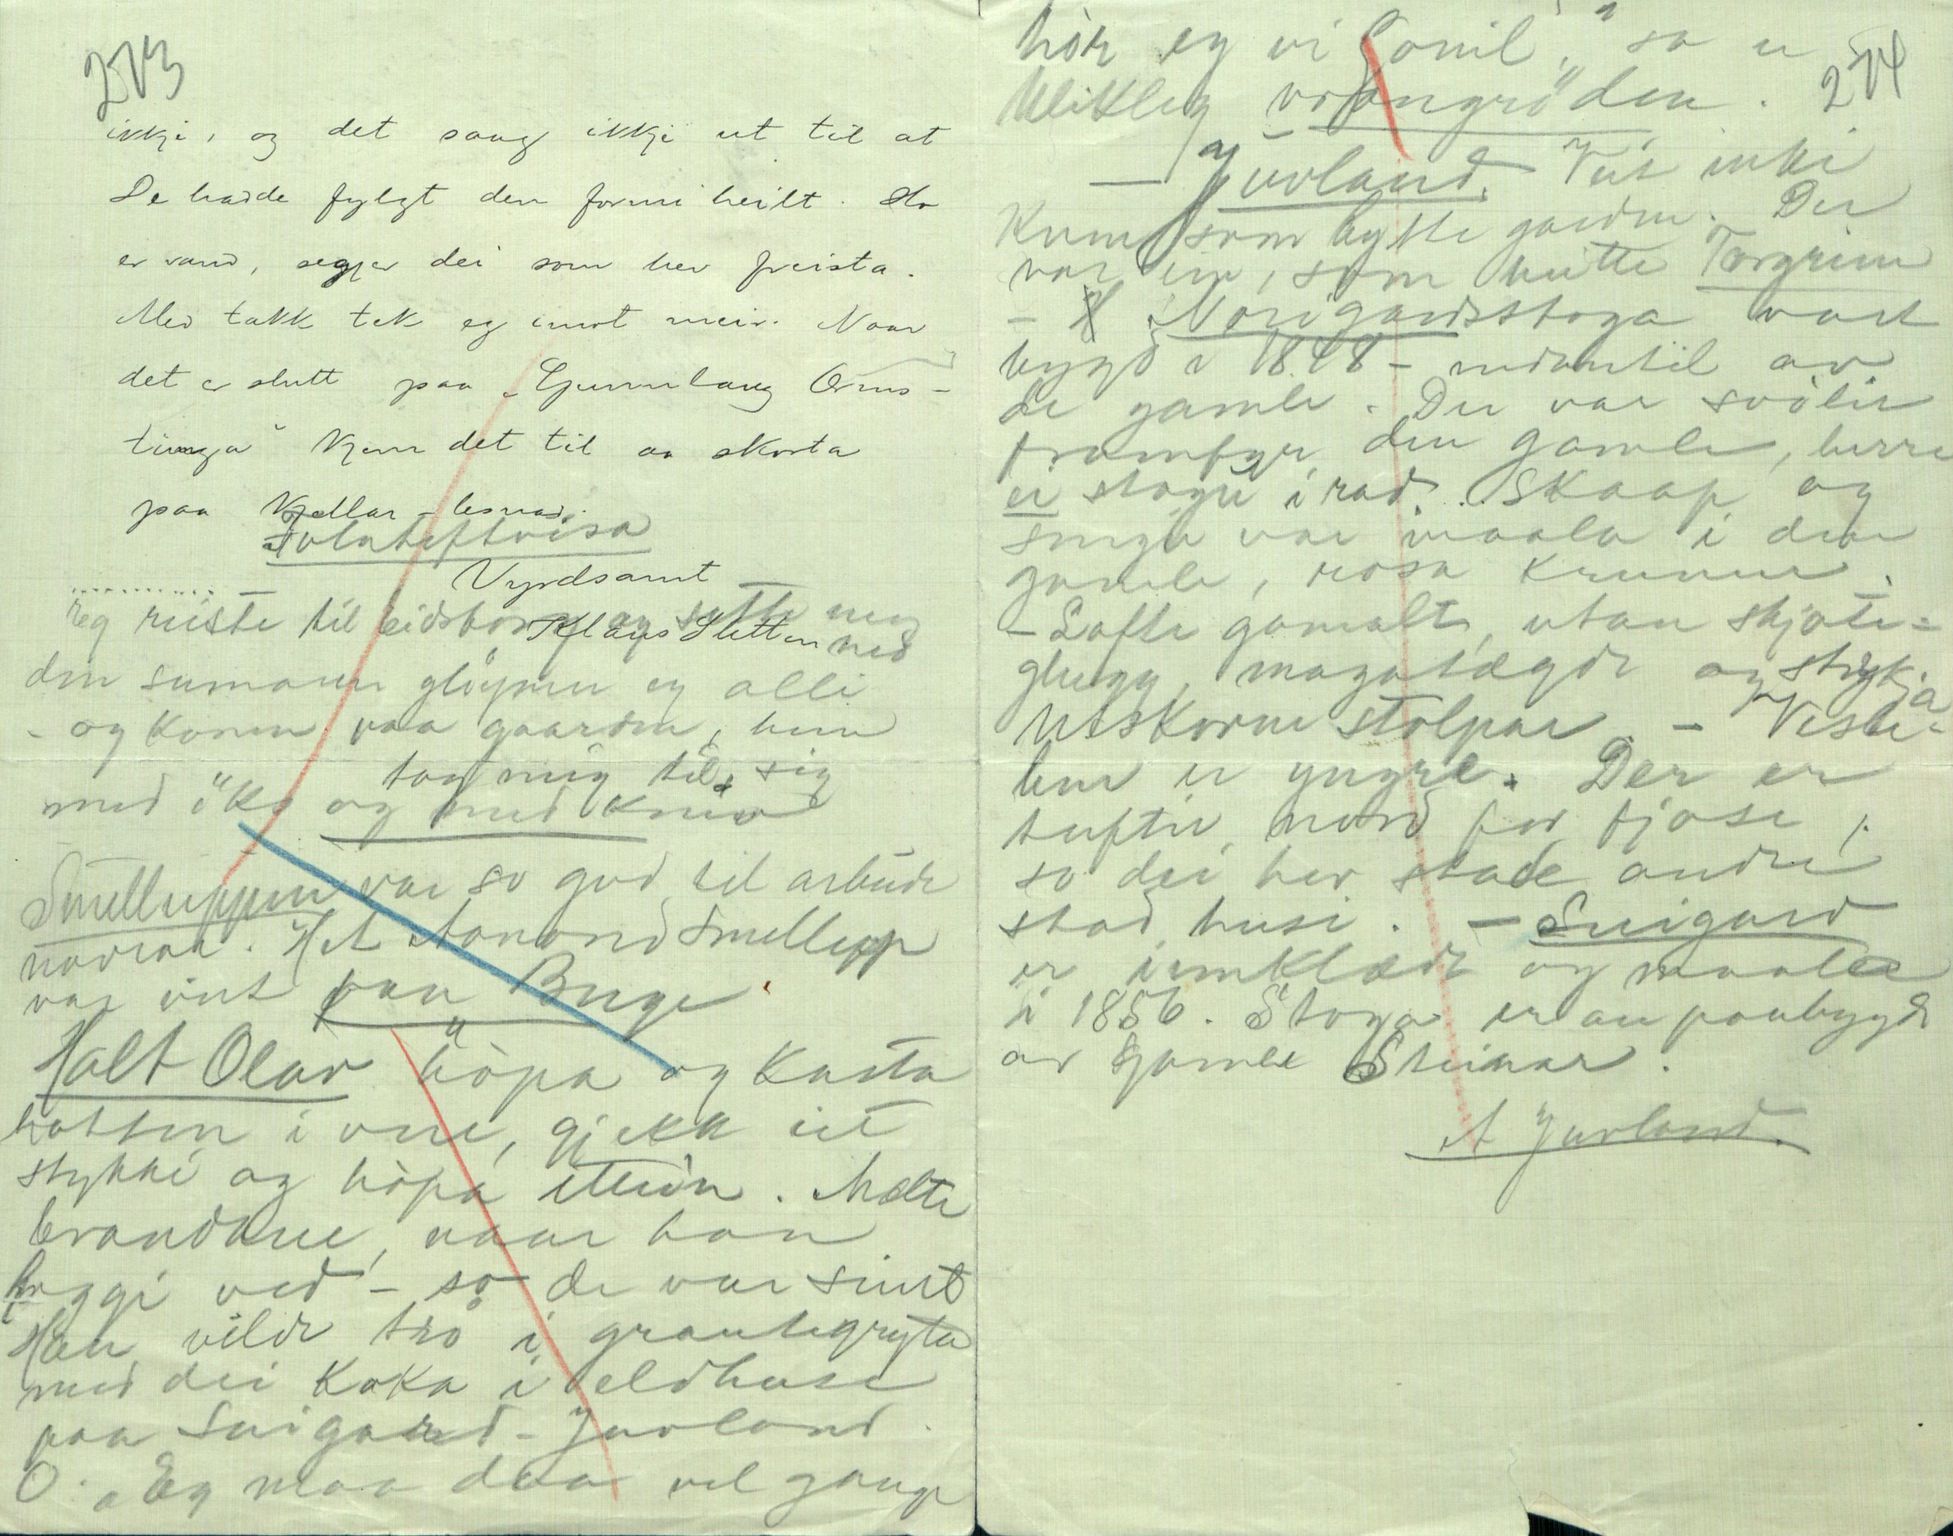 273
ikkje, og det saag ikkje ut til at
De hadde fylgt den formi heilt. Ho
er vand, segjer dei som hev freista.
Med takk tek eg imot meir. Naar
det er slutt paa "Gunnlaug Orms-
tunga" kjem det til aa skorta
paa Kjellar-lesnad.
Vyrdsamt
Klaus Sletten
Eg reiste til Eidsborg og sette meg ned
den sumaren gløymer eg alli
- og konm paa gaarden, hun
tog mig til sig
med øks og med kniv
Smelleppen var so god til arbeide
Het Aanond Smellepp
var inst paa Buge
Halt Olav høpa og kasta
hatten i omn, gjekk eit
stykki og høpa atteri. Mælte
brandane, naar han
hoggi ved - so de var sint
Han vilde trø i grautegryta
med dei koka i eldhuse
paa Suigard-Juvland.
O. Eg maa daa vel gange
274
hør eg vi Gonil", so er
vrangrøden.
- Juvland. Veit inkje
kven som bytte garden. Der
var ein, som heitte Torgrim
- Norigardsstoga vart
bygd i 1848 - nedantil av
de gamle. Der var svølir
framfyr den gamle, herre
ei stogu i rad. Skaap og
senga var maala i den
gamle, rosa krunur.
- Lofte gamalt, utan skjote=
glugg, magatægde og strykja
utskorne stolpar. - Veste=
bur er yngre. Der er
tufter nord for fjose,
so dei hev stade andre
stad husi. - Suigard
er innklædt og maala
i 1856. Stoga er au paabygd
av gamle Steinar.
A Juvland.